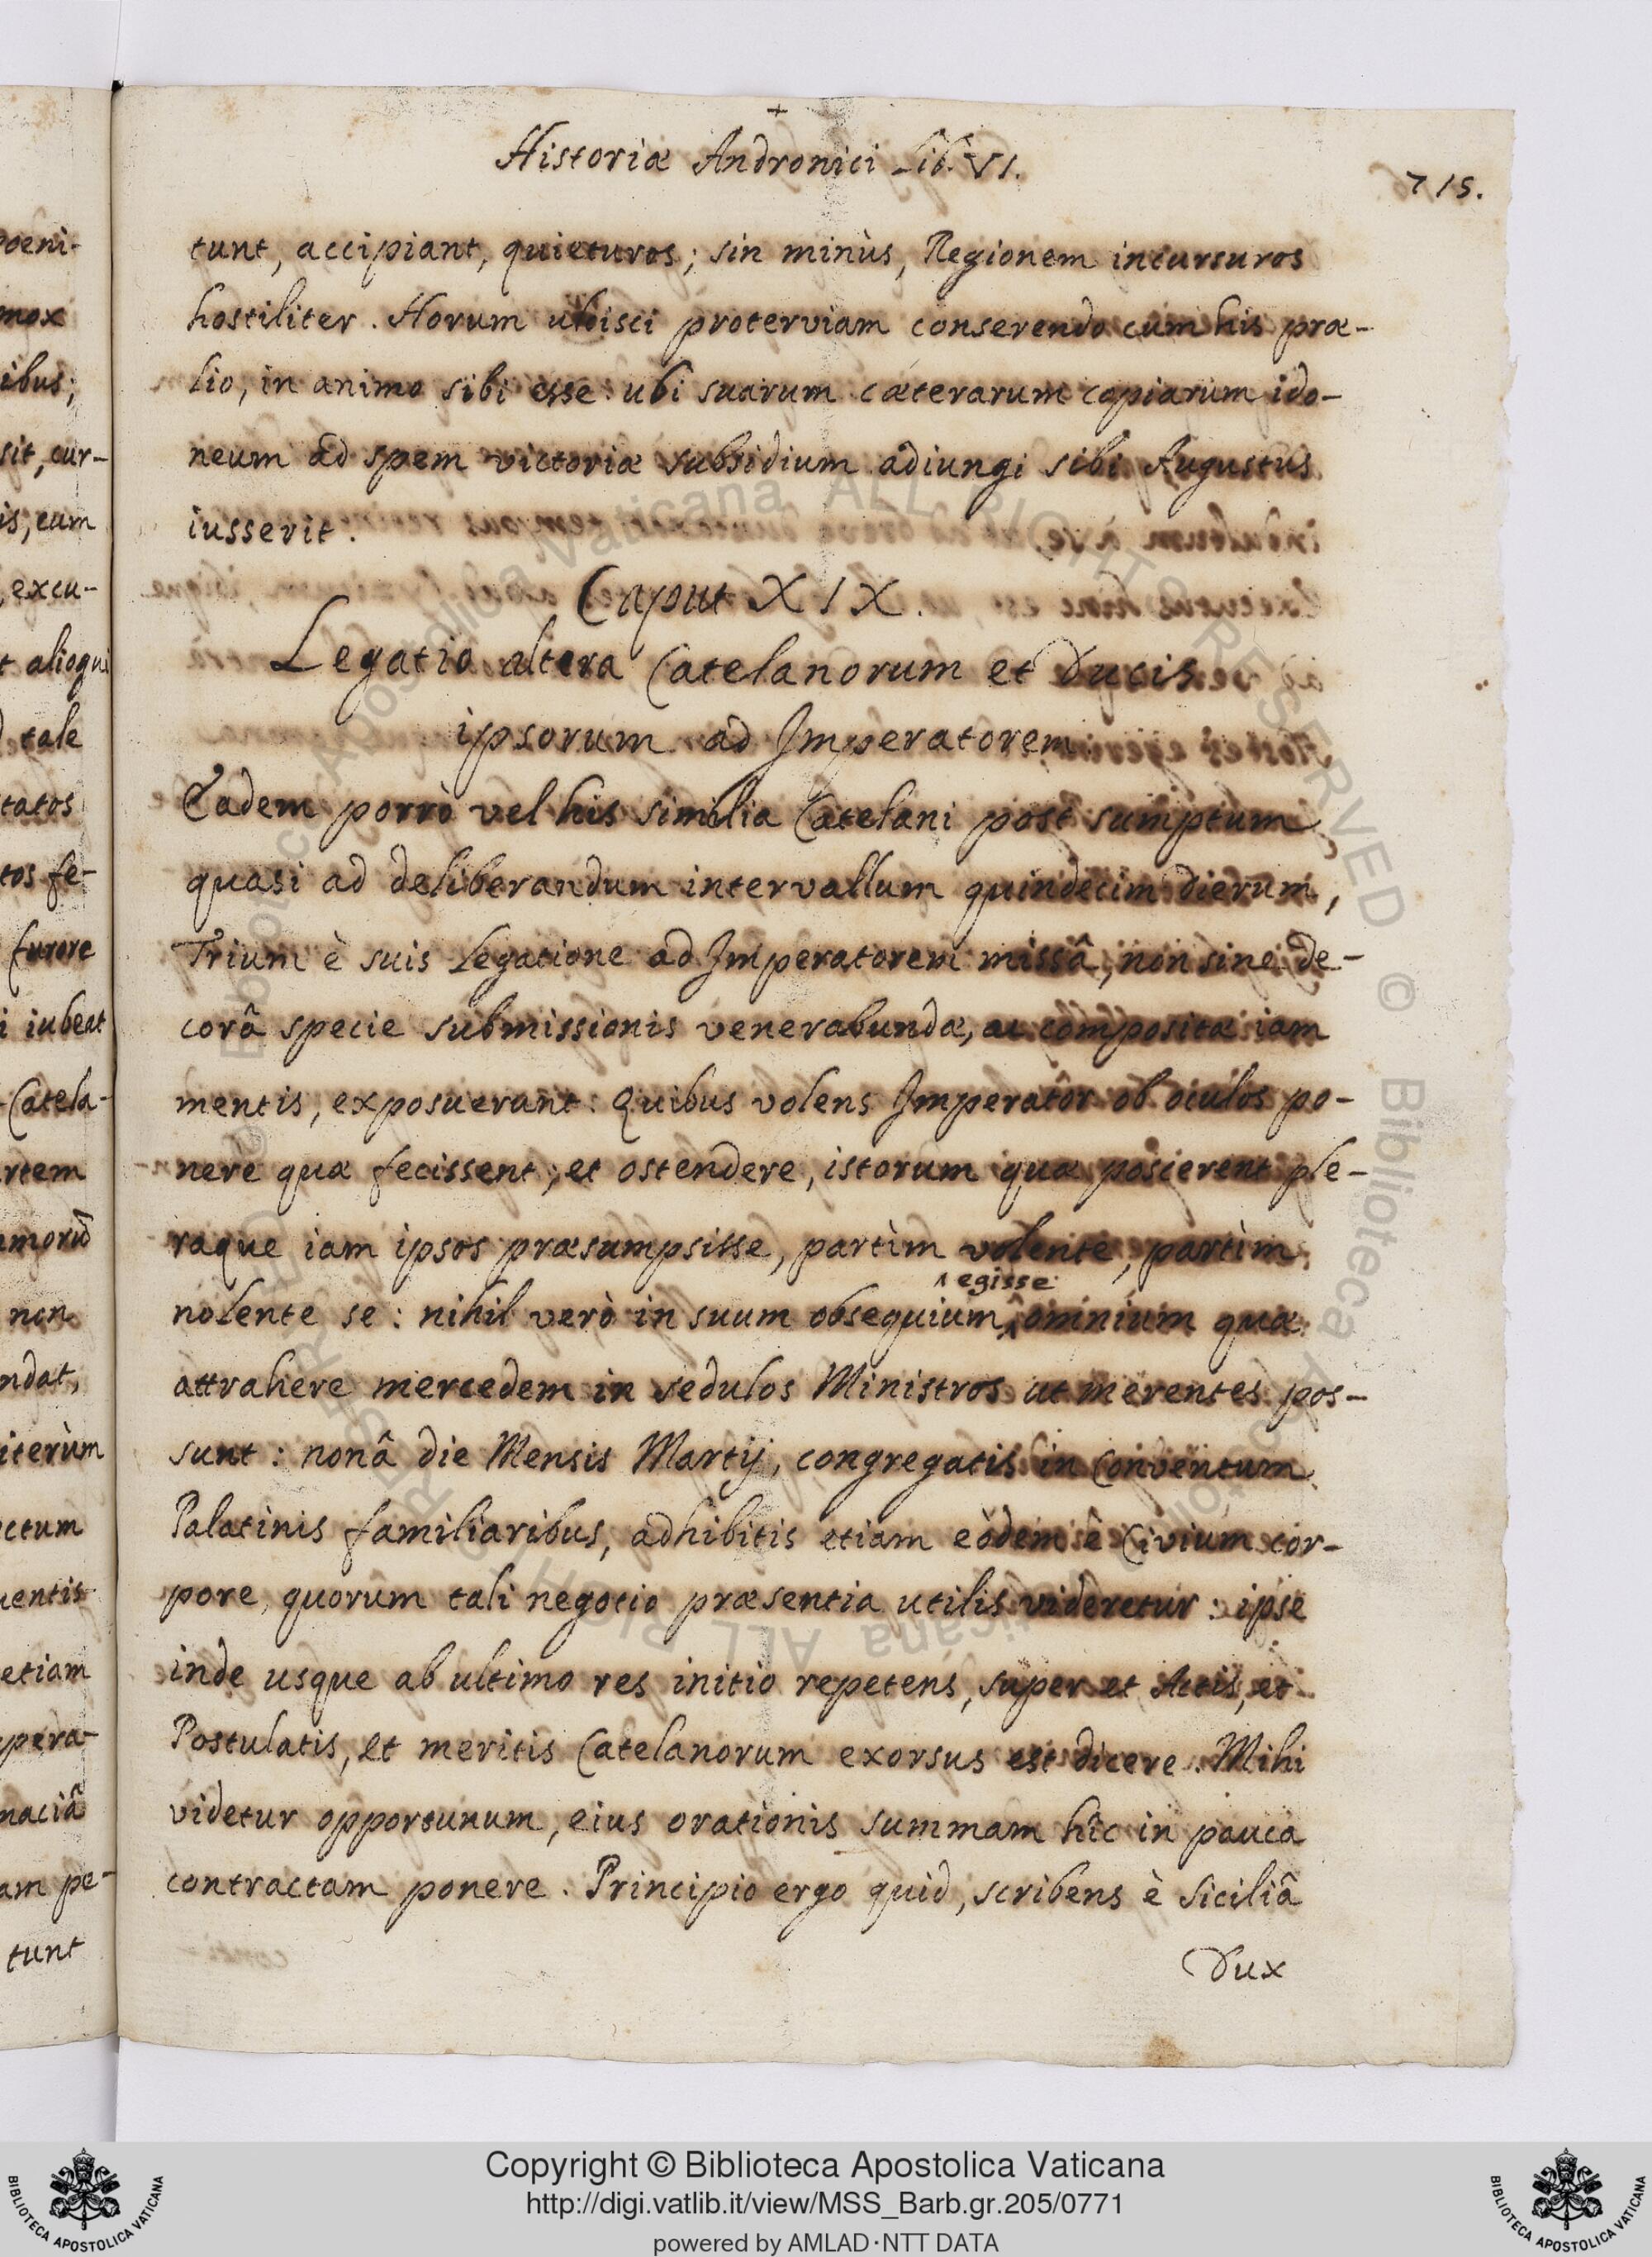 Historiæ Andronici Lib. VI.
715.
tunt, accipiant, quieturos; sin minùs, Regionem incursuros
hostiliter. Horum ulcisci proterviam conserendo cum his præ-
lio, in animo sibi esse: ubi suarum cæterarum copiarum ido-
neum ad spem victoriæ subsidium adiungi sibi Augustus
iusserit.
Caput XIX.
Legatio altera Catelanorum et Ducis
ipsorum ad Imperatorem.
Eadem porrò vel his similia Catelani post sumptum
quasi ad deliberandum intervallum quindecim dierum,
Trium è suis Legatione ad Imperatorem missâ, non sine de-
corâ specie submissionis venerabundæ, ac compositæ iam
mentis, exposuerant: Quibus volens Imperator ob oculos po-
nere quæ fecissent; et ostendere, istorum quæ poscerent ple-
raque iam ipsos præsumpsisse, partìm volente, partìm
nolente se: nihil verò in suum obsequium egisse omnium quæ
attrahere mercedem in sedulos Ministros ut merentes pos-
sunt: nonâ die Mensis Martij, congregatis in Conventum
Palatinis familiaribus, adhibitis etiam eòdem è Civium cor-
pore, quorum tali negotio præsentia utilis videretur: ipse
inde usque ab ultimo res initio repetens, super et Actis, et
Postulatis, et meritis Catelanorum exorsus est dicere. Mihi
videtur opportunum, eius orationis summam hîc in pauca
contractam ponere. Principio ergo quid, scribens è Siciliâ
Dux
poeni-
mox
ibus;
sit, cur-
is, cum
, excu-
t alioqui
tale
tatos
tos fe-
furore
i iubeat
Catela-
rtem
non
ndat,
iterùm
ctum
uentis
etiam
pera-
naciâ
am pe-
tunt
Copyright © Biblioteca Apostolica Vaticana
http://digi.vatlib.it/view/MSS_Barb.gr.205/0771
powered by AMLAD·NTT DATA
BIBLIOTECA APOSTOLICA VATICANA
BIBLIOTECA APOSTOLICA VATICANA